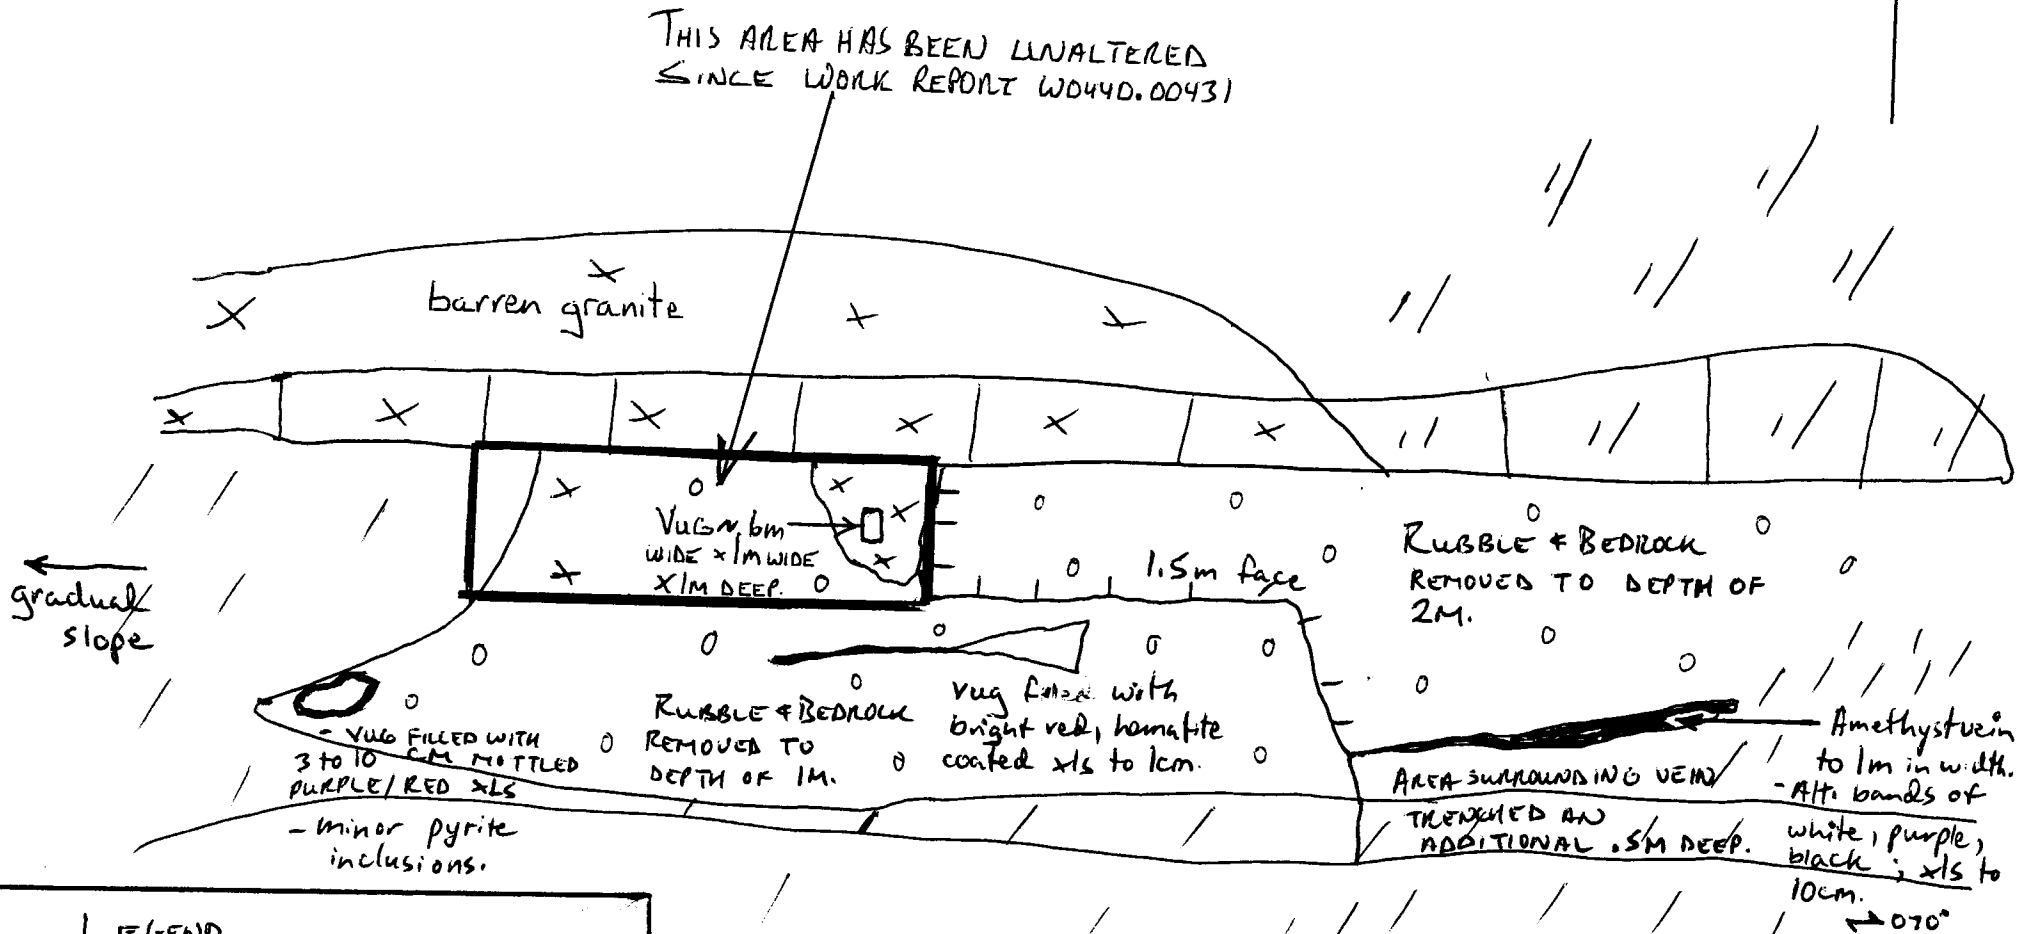 THIS AREA HAS BEEN UNALTERED
SINCE WORK REPORT W0440.00431
barren granite
VUG ~.6m
WIDE x 1M WIDE
X 1M DEEP.
1.5m face
RUBBLE & BEDROCK
REMOVED TO DEPTH OF
2M.
gradual
slope
- VUG FILLED WITH
3 to 10 CM MOTTLED
PURPLE/RED XLS
- minor pyrite
inclusions.
RUBBLE & BEDROCK
REMOVED TO
DEPTH OF 1M.
vug filled with
bright red, hematite
coated xls to 1cm.
Amethyst vein
to 1m in width.
- Alt. bands of
white, purple,
black ; xls to
10cm.
070°
AREA SURROUNDING VEIN
TRENCHED AN
ADDITIONAL .5M DEEP.
LEGEND